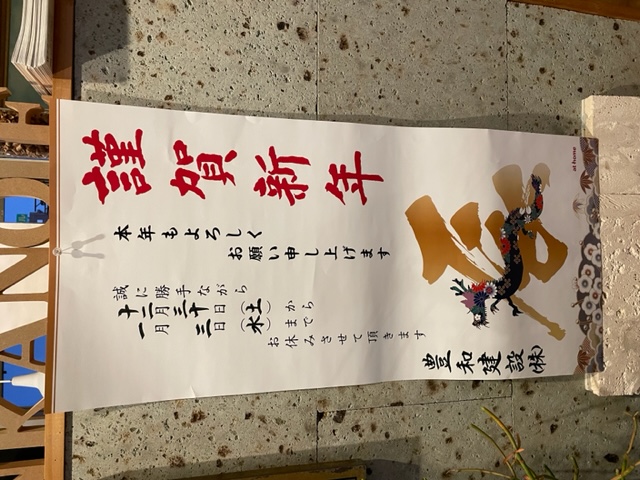 謹賀新年
本年もよろしく
お願い申し上げます
誠に勝手ながら
十二月三十日(土)から
一月三日(水)まで
お休みさせて頂きます
豊和建設㈱
at home